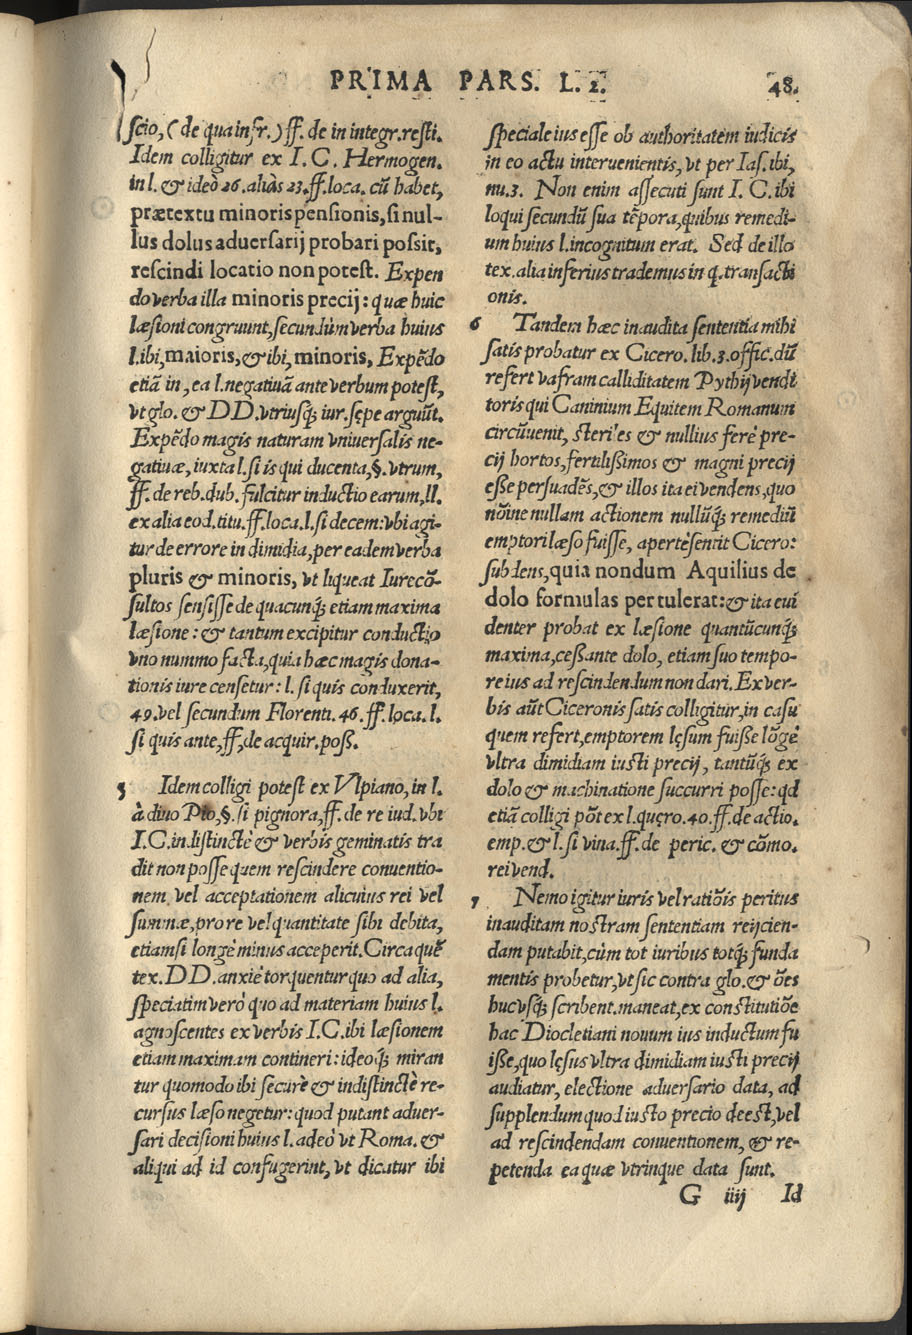 PRIMA PARS. L. 2. 48.
scio, (de qua infr.) ff. de in integr. resti.
Idem colligitur ex I. C. Hermogen.
in l. & ideò 26. aliàs 23. ff. loca. cũ habet,
prætextu minoris pensionis, si nul-
lus dolus aduersarij probari possit,
rescindi locatio non potest. Expen
do verba illa minoris precij: quæ huic
læsioni congruunt, secundùm verba huius
l. ibi, maioris, & ibi, minoris, Expẽdo
etiã in, ea l. negatiuã ante verbum potest,
vt glo. & DD. vtriusq́; iur. sępe arguũt.
Expẽdo magis naturam vniuersalis ne-
gatiuæ, iuxta l. si is qui ducenta, §. vtrum,
ff. de reb. dub. fulcitur inductio earum, ll.
ex alia eod. titu. ff. loca. l. si decem: vbi agi-
tur de errore in dimidia, per eadem verba
pluris & minoris, vt liqueat Iurecõ-
sultos sensisse de quacunq́; etiam maxima
læsione: & tantum excipitur conductio
vno nummo facta, quia hæc magis dona-
tionis iure censetur: l. si quis conduxerit,
49. vel secundum Florenti. 46. ff. loca. l.
si quis ante, ff, de acquir. poß.
5 Idem colligi potest ex Vlpiano, in l.
à diuo Pio, §. si pignora, ff. de re iud. vbi
I. C. indistinctè & verbis geminatis tra
dit non posse quem rescindere conuentio-
nem, vel acceptationem alicuius rei vel
summæ, pro re vel quantitate sibi debita,
etiamsi longè minus acceperit. Circa quẽ
tex. DD. anxiè torquentur quo ad alia,
speciatim verò quo ad materiam huius l.
agnoscentes ex verbis I. C. ibi læsionem
etiam maximam contineri: ideoq́; miran
tur quomodo ibi securè & indistinctè re-
cursus læso negetur: quod putant aduer-
sari decisioni huius l. adeò vt Roma. &
aliqui ad id confugerint, vt dicatur ibi
speciale ius esse ob authoritatem iudicis
in eo actu interuenientis, vt per Ias. ibi,
nu. 3. Non enim assecuti sunt I. C. ibi
loqui secundũ sua tẽpora, quibus remedi-
um huius l. incognitum erat. Sed de illo
tex. alia inferius trademus in q. transacti
onis.
6 Tandem hæc inaudita sententia mihi
satis probatur ex Cicero. lib. 3. offic. dũ
refert vafram calliditatem Pythij vendi
toris qui Caninium Equitem Romanum
circũuenit, steriles & nullius ferè pre-
cij hortos, fertilißimos & magni precij
eße persuadẽs, & illos ita ei vendens, quo
nõine nullam actionem nullũq́; remediũ
emptori læso fuisse, apertè sentit Cicero:
subdens, quia nondum Aquilius de
dolo formulas pertulerat: & ita eui
denter probat ex læsione quantũcunq́;
maxima, ceßante dolo, etiam suo tempo-
re ius ad rescindendum non dari. Ex ver-
bis aũt Ciceronis satis colligitur, in casu
quem refert, emptorem lęsum fuiße lõgè
vltra dimidiam iusti precij, tantũq́; ex
dolo & machinatione succurri posse: qd
etiã colligi põt ex l. quęro. 40. ff. de actio.
emp. & l. si vina. ff. de peric. & cõmo.
rei vend.
7 Nemo igitur iuris vel ratiõis peritus
inauditam nostram sententiam reijcien-
dam putabit, cùm tot iuribus totq́; funda
mentis probetur, vt sic contra glo. & ões
hucvsq́; scribent. maneat, ex constitutiõe
hac Diocletiani nouum ius inductum fu
iße, quo lęsus vltra dimidiam iusti precij
audiatur, electione aduersario data, ad
supplendum quod iusto precio deest, vel
ad rescindendam conuentionem, & re-
petenda ea quæ vtrinque data sunt.
G iiij Id